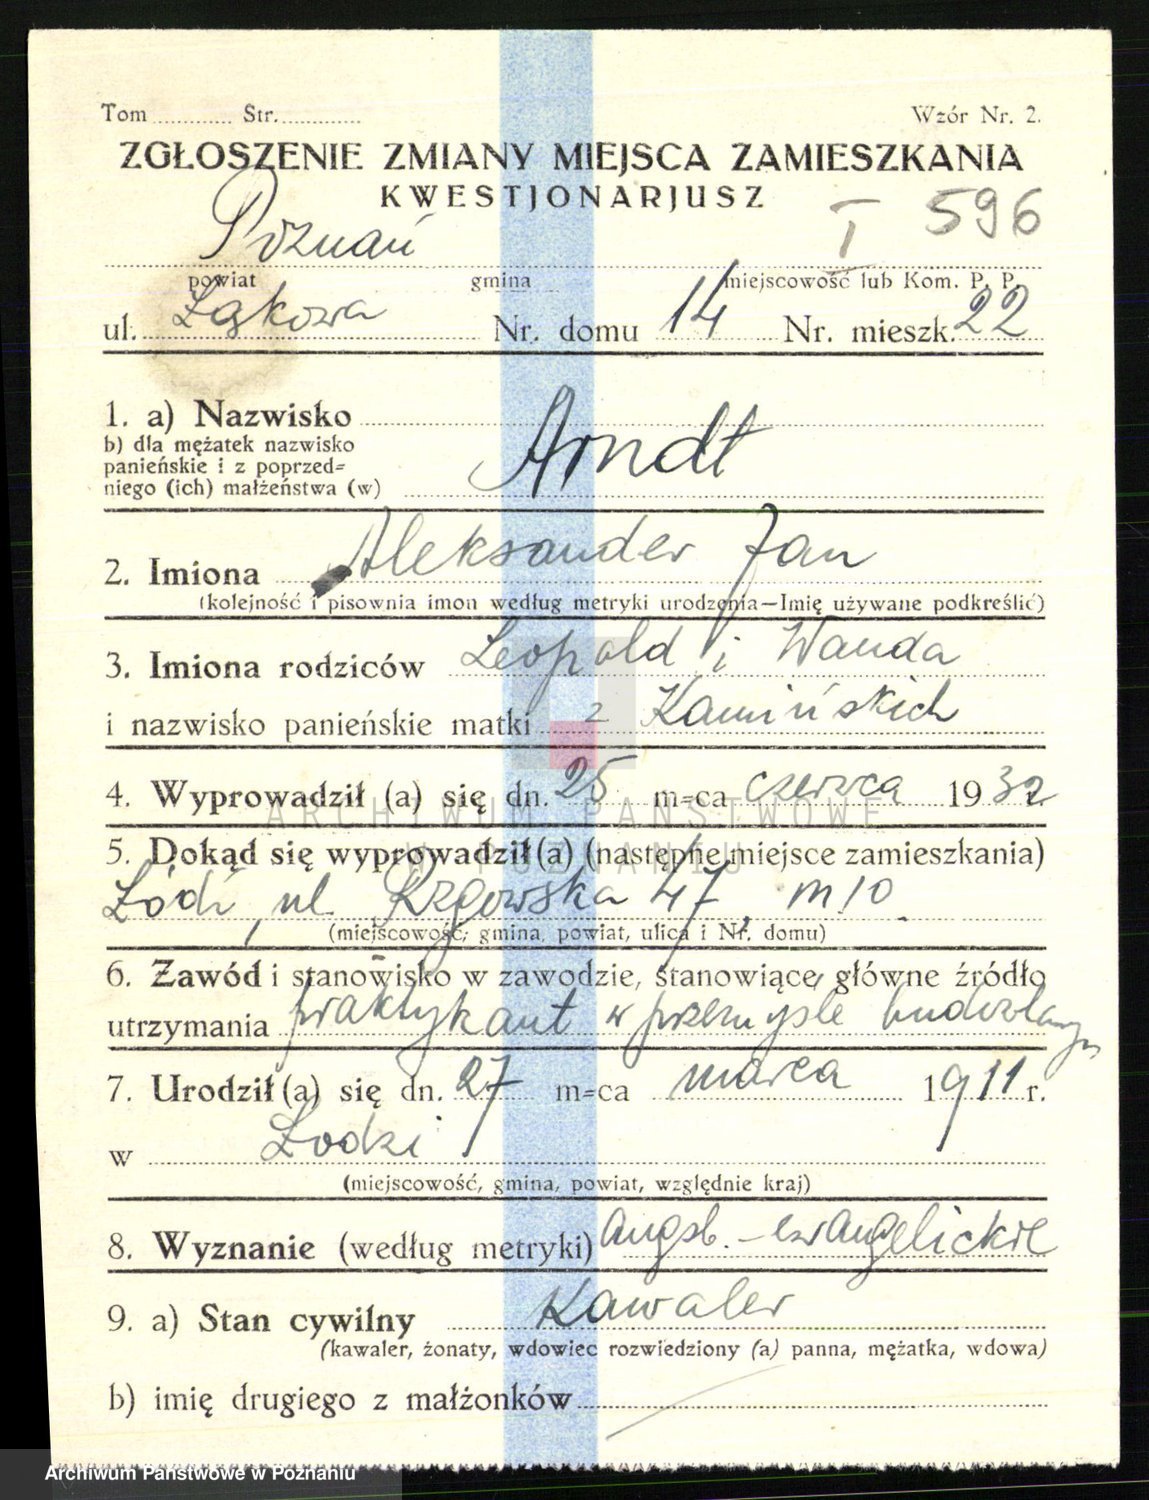 Tom ............ Str. ............ Wzór Nr. 2.
ZGŁOSZENIE ZMIANY MIEJSCA ZAMIESZKANIA
KWESTJONARJUSZ
Poznań I 596
powiat gmina miejscowość lub Kom. P. P.
ul. Łąkowa Nr. domu 14 Nr. mieszk. 22
1. a) Nazwisko
b) dla mężatek nazwisko
panieńskie i z poprzed=
niego (ich) małżeństwa (w)
Arndt
2. Imiona Aleksander Jan
(kolejność i pisownia imon według metryki urodzenia—Imię używane podkreślić)
3. Imiona rodziców Leopold i Wanda
i nazwisko panieńskie matki z Kamińskich
4. Wyprowadził (a) się dn. 25 m=ca czerwca 1932
ARCHIWUM PAŃSTWOWE
W POZNANIU
5. Dokąd się wyprowadził (a) (następne miejsce zamieszkania)
Łódź, ul. Rzgowska 47, m 10.
(miejscowość, gmina, powiat, ulica i Nr. domu)
6. Zawód i stanowisko w zawodzie, stanowiące główne źródło
utrzymania praktykant w przemyśle budowlanym
7. Urodził (a) się dn. 27 m=ca marca 1911 r.
w Łodzi
(miejscowość, gmina, powiat, względnie kraj)
8. Wyznanie (według metryki) augsb.-ewangelickie
9. a) Stan cywilny Kawaler
(kawaler, żonaty, wdowiec rozwiedziony (a) panna, mężatka, wdowa)
b) imię drugiego z małżonków
Archiwum Państwowe w Poznaniu